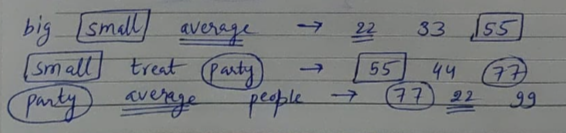 big small average → 22 33 55
small treat party → 55 44 77
party average people → 77 22 99